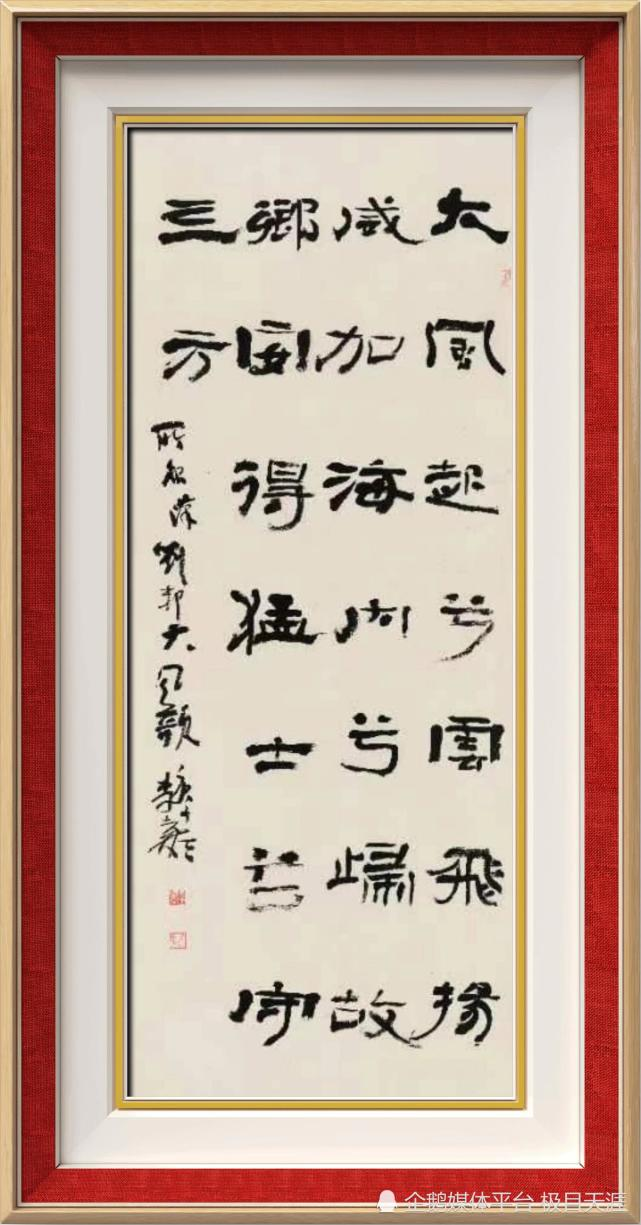 大風起兮雲飛揚
威加海内兮歸故
鄉安得猛士兮守
三方
漢劉邦大風歌
企鹅媒体平台 极目天涯